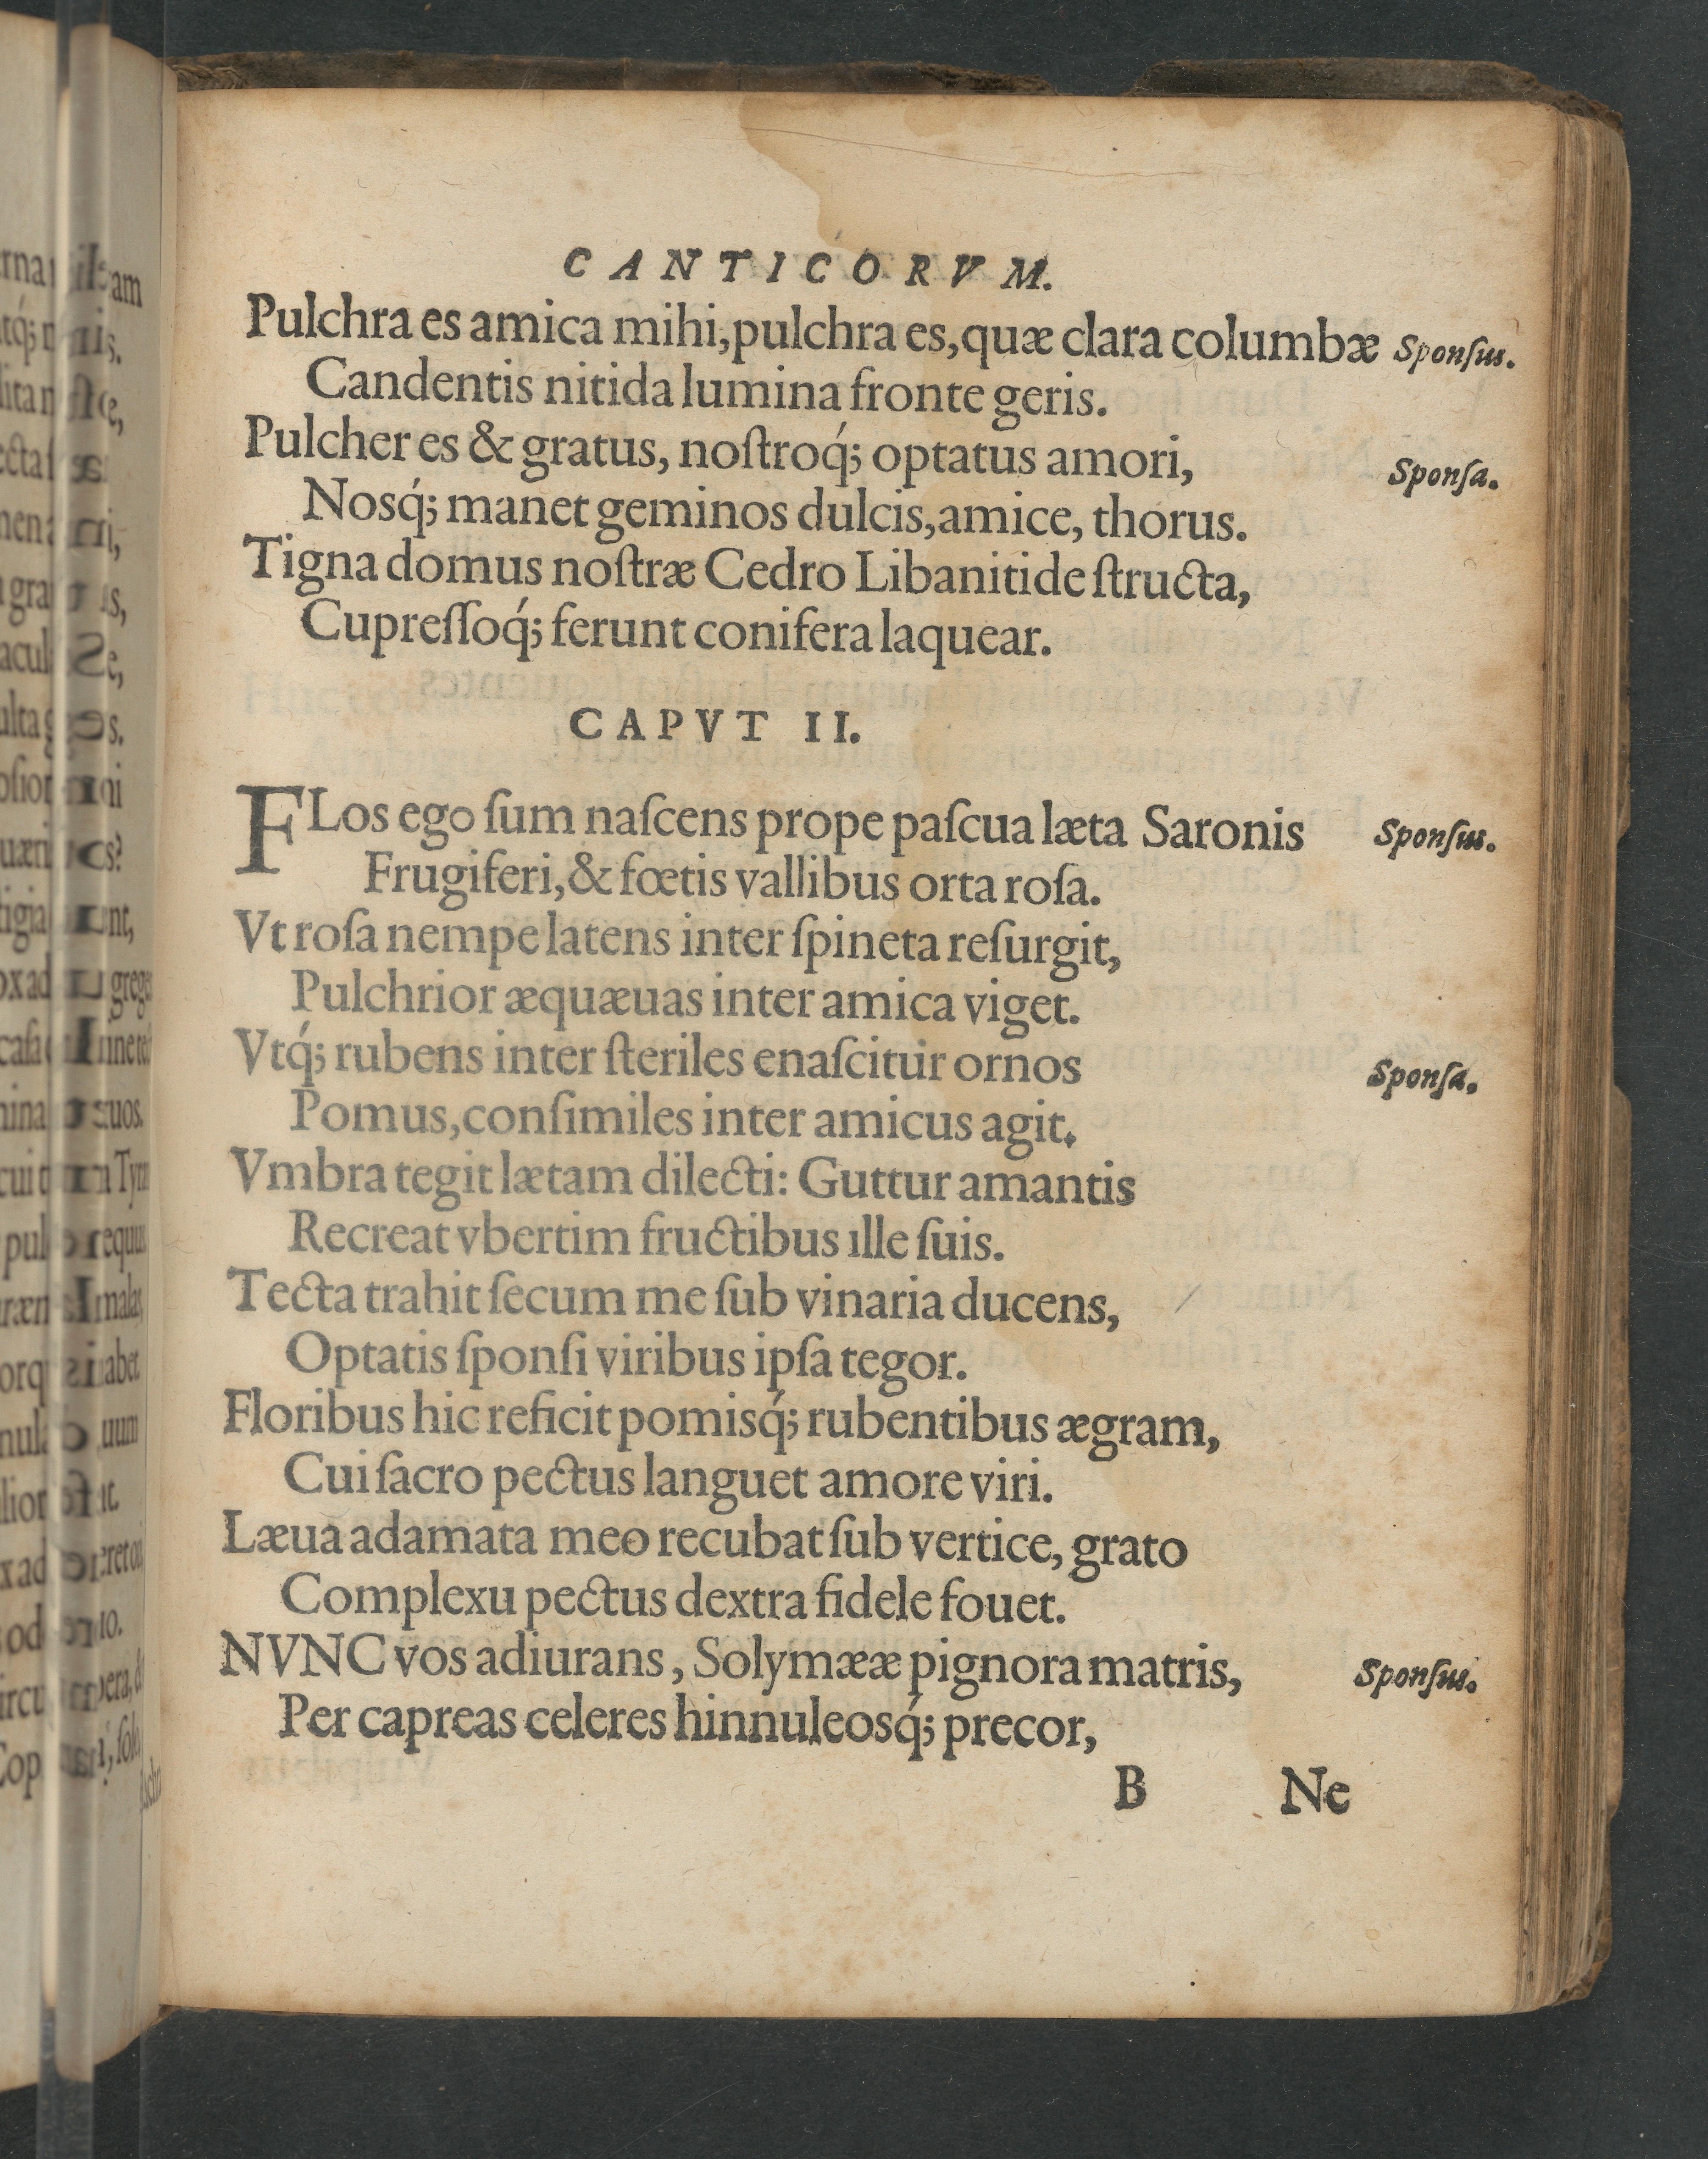 CANTICORVM.
Pulchra es amica mihi, pulchra es, quæ clara columbæ Sponſus.
Candentis nitida lumina fronte geris.
Pulcher es & gratus, noſtroq́; optatus amori, Sponſa.
Nosq́; manet geminos dulcis, amice, thorus.
Tigna domus noſtræ Cedro Libanitide ſtructa,
Cupreſſoq́; ferunt conifera laquear.
CAPVT II.
FLos ego ſum naſcens prope paſcua læta Saronis Sponſus.
Frugiferi, & fœtis vallibus orta roſa.
Vt roſa nempe latens inter ſpineta reſurgit,
Pulchrior æquæuas inter amica viget.
Vtq́; rubens inter ſteriles enaſcitur ornos Sponſa.
Pomus, conſimiles inter amicus agit.
Vmbra tegit lætam dilecti: Guttur amantis
Recreat vbertim fructibus ille ſuis.
Tecta trahit ſecum me ſub vinaria ducens,
Optatis ſponſi viribus ipſa tegor.
Floribus hic reficit pomisq́; rubentibus ægram,
Cui ſacro pectus languet amore viri.
Læua adamata meo recubat ſub vertice, grato
Complexu pectus dextra fidele fouet.
NVNC vos adiurans, Solymææ pignora matris, Sponſus.
Per capreas celeres hinnuleosq́; precor,
B Ne